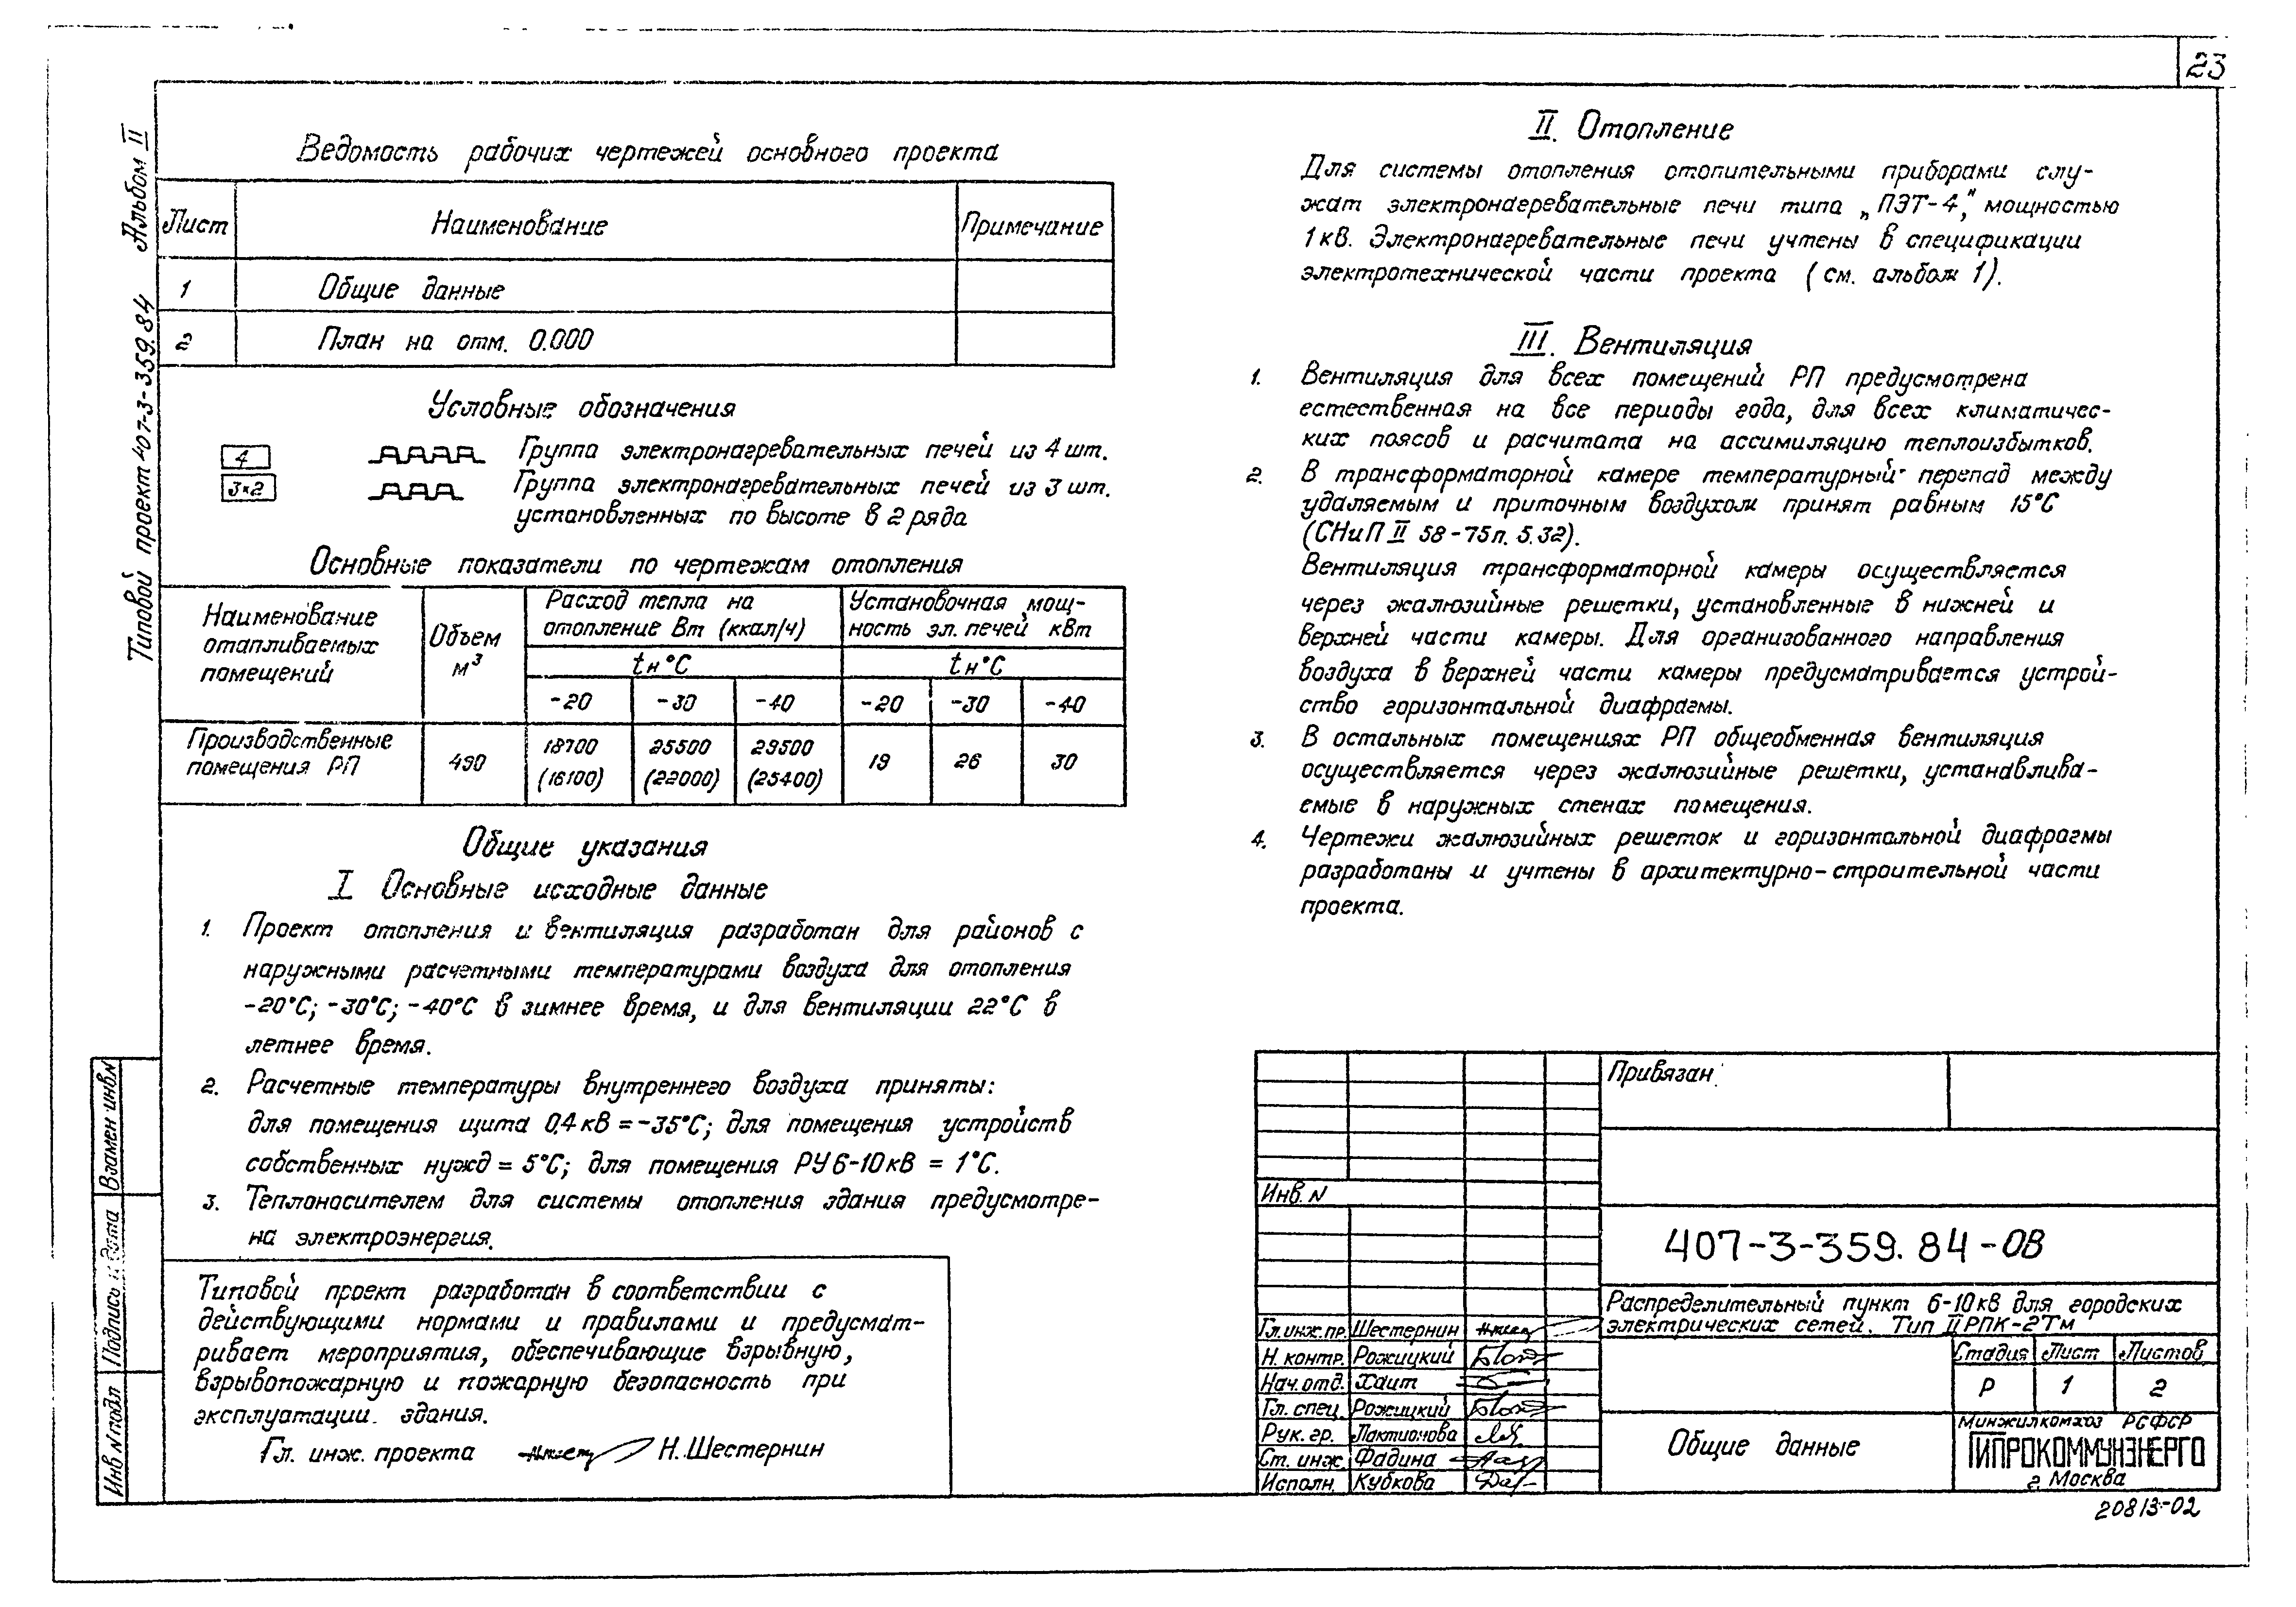 23
Типовой проект 407-3-359.84 Альбом II
Ведомость рабочих чертежей основного проекта
Лист Наименование Примечание
1 Общие данные
2 План на отм. 0.000
Условные обозначения
4 Группа электронагревательных печей из 4 шт.
3×2 Группа электронагревательных печей из 3 шт.
установленных по высоте в 2 ряда
Основные показатели по чертежам отопления
Наименование отапливаемых помещений
Объем м³
Расход тепла на отопление Вт (ккал/ч)
Установочная мощ-
ность эл. печей кВт
tн°С tн°С
-20 -30 -40 -20 -30 -40
Производственные помещения РП
490 18700 25500 29500 19 26 30
(16100) (22000) (25400)
Общие указания
I Основные исходные данные
1. Проект отопления и вентиляция разработан для районов с
наружными расчетными температурами воздуха для отопления
-20°С; -30°С; -40°С в зимнее время, и для вентиляции 22°С в
летнее время.
2. Расчетные температуры внутреннего воздуха приняты:
для помещения щита 0,4 кВ = -35°С; для помещения устройств
собственных нужд = 5°С; для помещения РУ 6-10 кВ = 1°С.
3. Теплоносителем для системы отопления здания предусмотре-
на электроэнергия.
Типовой проект разработан в соответствии с
действующими нормами и правилами и предусмат-
ривает мероприятия, обеспечивающие взрывную,
взрывопожарную и пожарную безопасность при
эксплуатации здания.
Гл. инж. проекта Н. Шестернин
II. Отопление
Для системы отопления отопительными приборами слу-
жат электронагревательные печи типа „ПЭТ-4," мощностью
1 кВ. Электронагревательные печи учтены в спецификации
электротехнической части проекта (см. альбом 1).
III. Вентиляция
1. Вентиляция для всех помещений РП предусмотрена
естественная на все периоды года, для всех климатичес-
ких поясов и расчитата на ассимиляцию теплоизбытков.
2. В трансформаторной камере температурный перепад между
удаляемым и приточным воздухом принят равным 15°С
(СНиП II 58-75 п. 5.32).
Вентиляция трансформаторной камеры осуществляется
через жалюзийные решетки, установленные в нижней и
верхней части камеры. Для организованного направления
воздуха в верхней части камеры предусматривается устрой-
ство горизонтальной диафрагмы.
3. В остальных помещениях РП общеобменная вентиляция
осуществляется через жалюзийные решетки, устанавлива-
емые в наружных стенах помещения.
4. Чертежи жалюзийных решеток и горизонтальной диафрагмы
разработаны и учтены в архитектурно-строительной части
проекта.
Взамен инв.N
Подпись и дата
Инв.N подл
Привязан
Инв. N
407-3-359.84-ОВ
Распределительный пункт 6-10 кВ для городских
электрических сетей. Тип II РПК-2Тм
Гл.инж.пр. Шестернин
Н. контр. Рожицкий
Нач.отд. Хаит
Гл. спец. Рожицкий
Рук. гр. Лактионова
Ст. инж. Фадина
Исполн. Кубкова
Стадия Лист Листов
Р 1 2
Общие данные
Минжилкомхоз РСФСР
ГИПРОКОММУНЭНЕРГО
г. Москва
20813-02